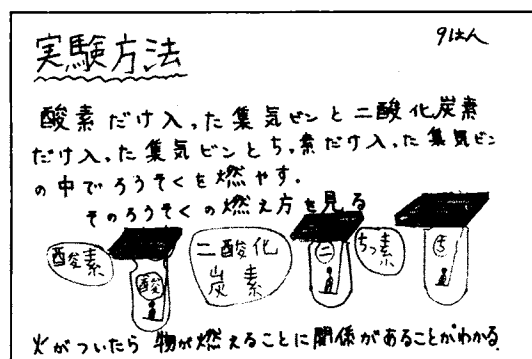 実験方法
9はん
酸素だけ入った集気ビンと二酸化炭素
だけ入った集気ビンとちっ素だけ入った集気ビン
の中でろうそくを燃やす。
そのろうそくの燃え方を見る
酸素
酸
二酸化
炭素
二
ちっ素
ち
火がついたら物が燃えることに関係があることがわかる